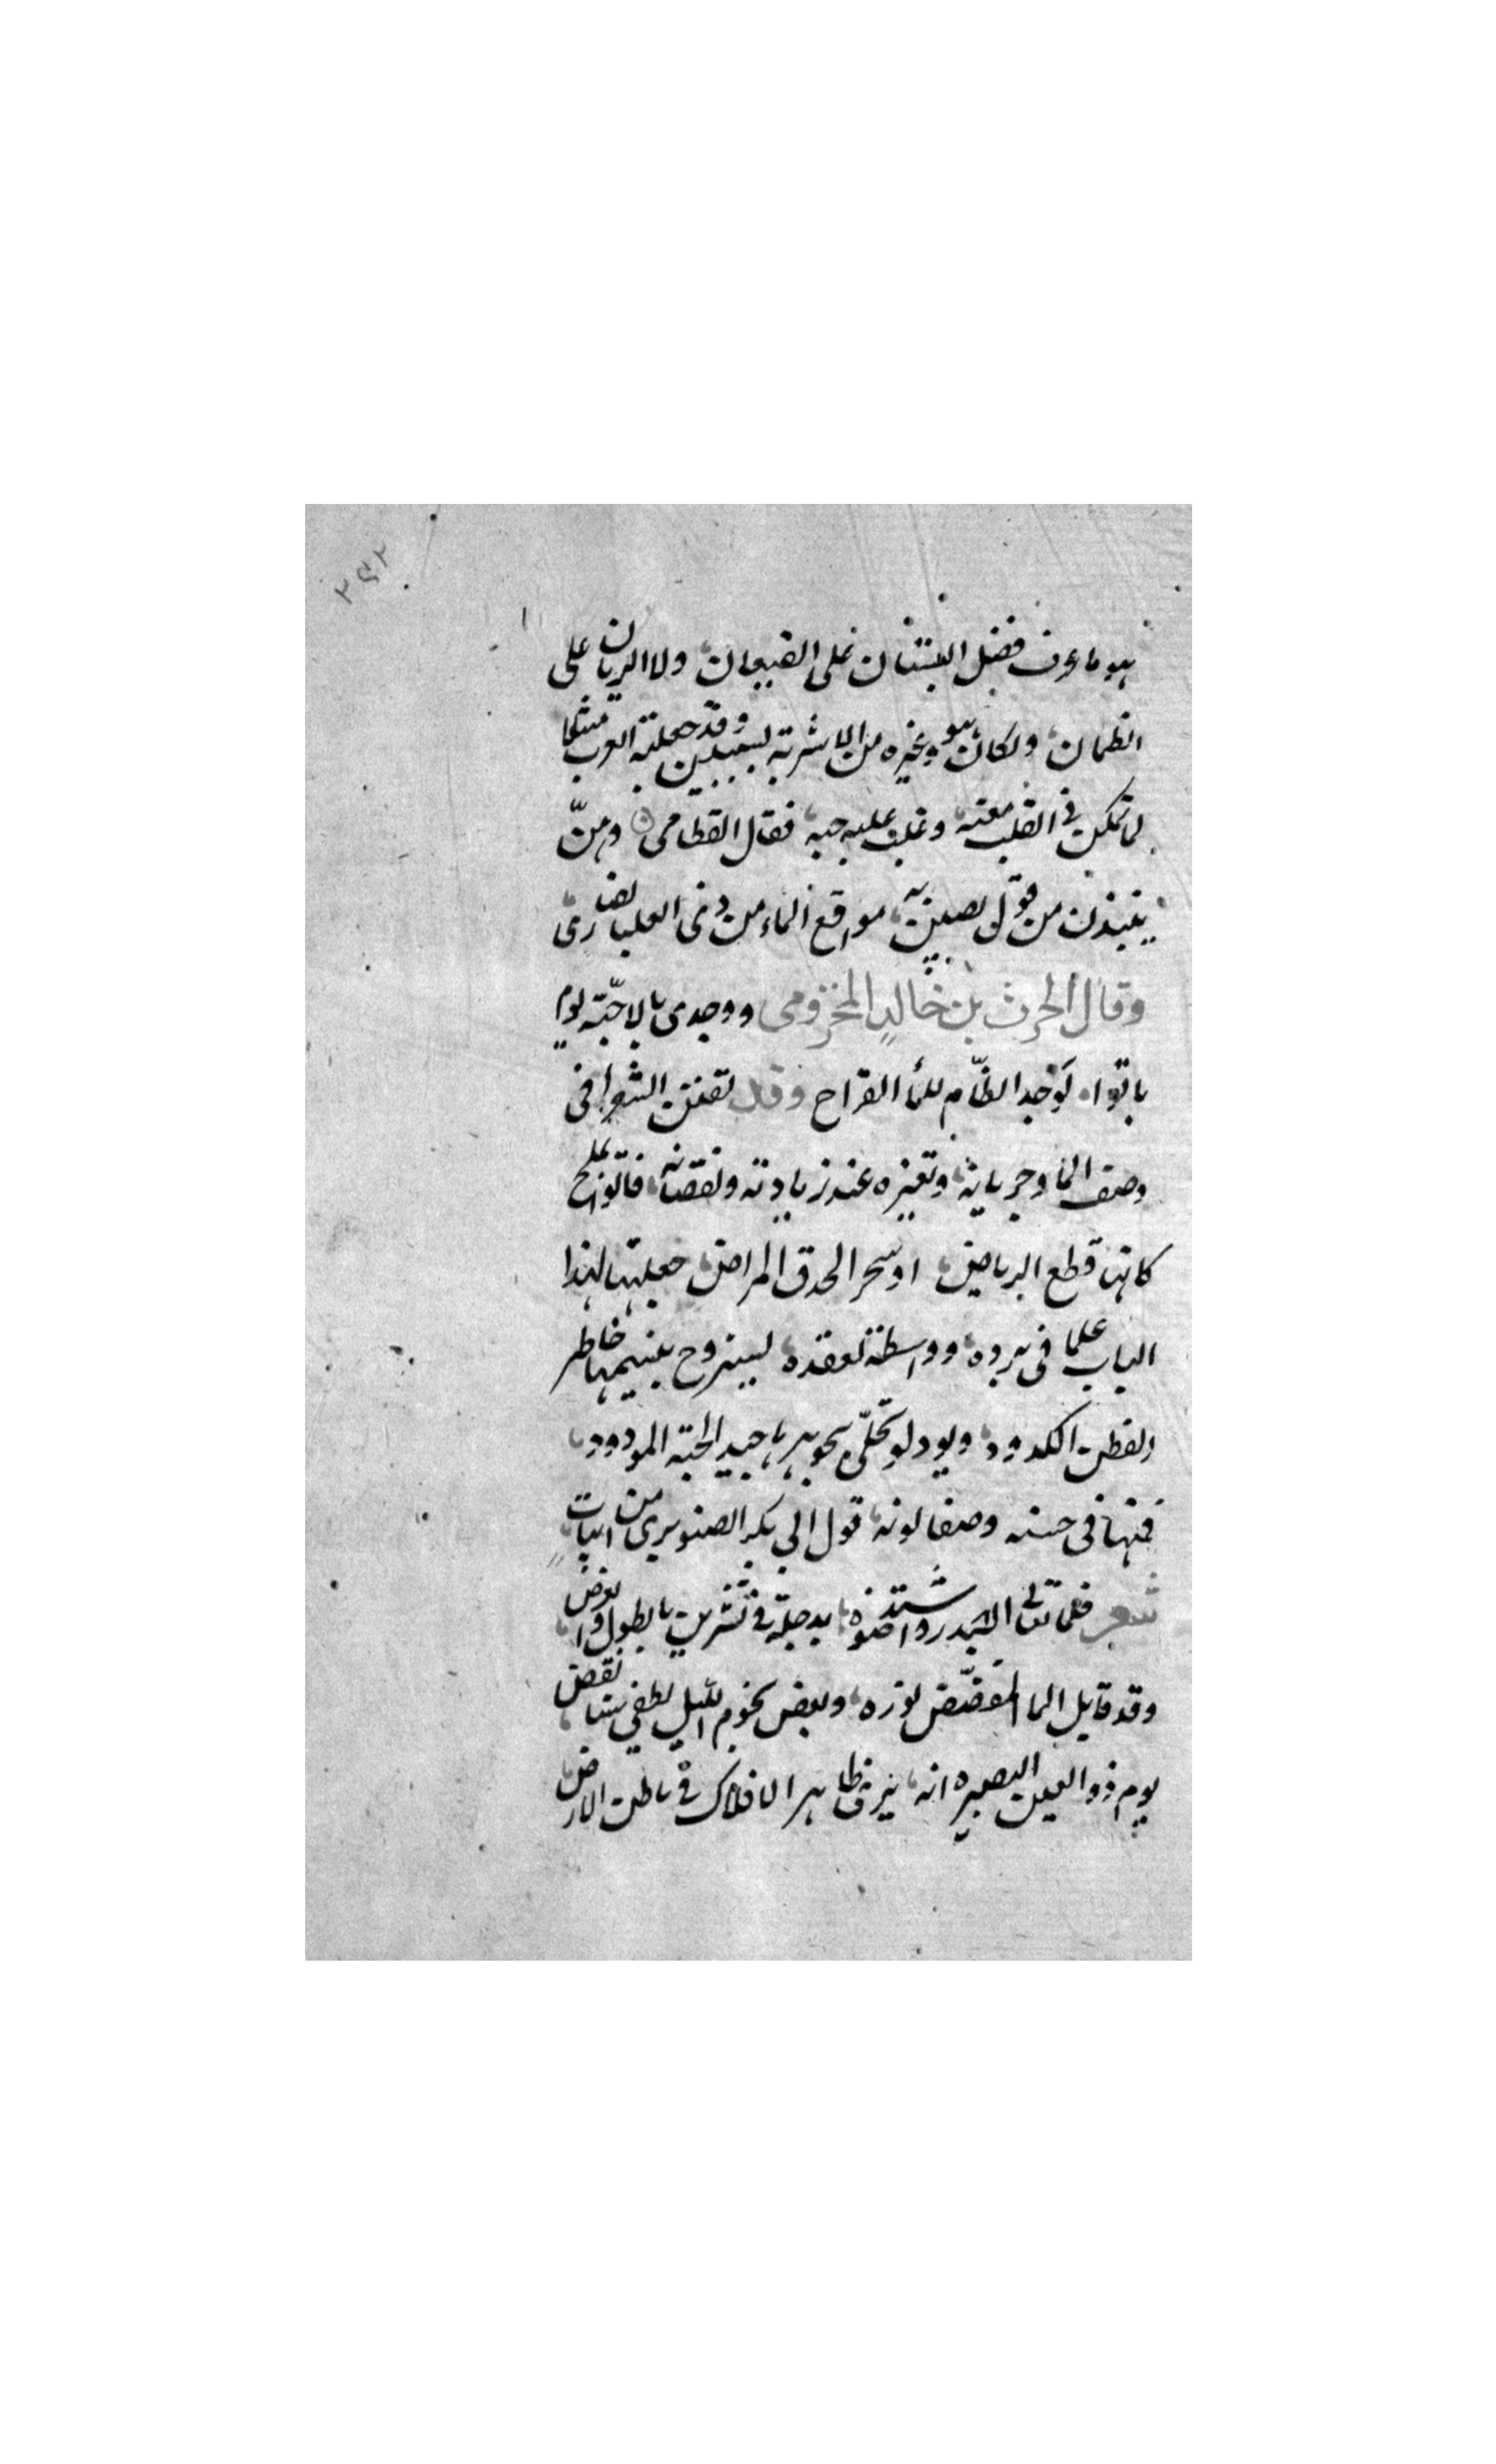 ٢٩٢
هو ما عرف فضل البستان على القيعان ولا الريان على
الظمان ولكان هو وغيره من الاشربة لسبيلين وقد جعلته العرب مثلا
لما تمكن فى القلب موقعه وغلب عليه حبه فقال القطامى وهنّ
ينبذن من قول يصبن به مواقع الماء من ذى الغلة الصادى
وقال الحرث بن خالد المخزومى ووجدى بالاحبّة يوم
باتوا كوجد الظّام للماء القراح وقد تفنن الشعرا فى
وصف الما وجريانه وتغيره عند زيادته ونقصانه فاتوا بملح
كانها قطع الرياض او سحر الحدق المراض جعلتها لهذا
الباب علما فى برده وواسطة لعقده ليستروح بنسيمها خاطر
الفطن الكدود ويود لو تحلّى بجوهرها جيد المحبة المودود
فمنها فى حسنه وصفا لونه قول ابى بكر الصنوبرى من ابيات
شعر فلما تعالى البدر واشتد ضوه بدجلة فى تشرين بالطول والعرض
وقد قابل الما المفضّض نوره وبعض نجوم الليل يطفى سنا بعض
توهم ذو العين البصيره انه يرى ظاهر الافلاك فى باطن الارض